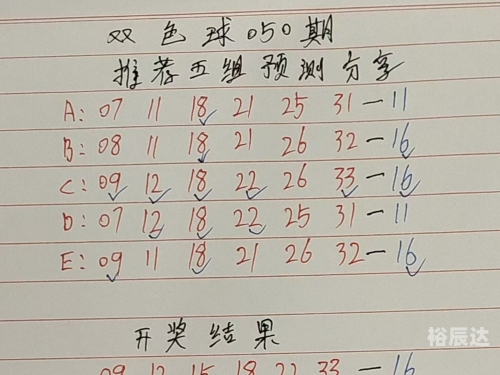 双色球050期
推荐五组预测分享
A: 07 11 18 21 25 31—11
B: 08 11 18 21 26 32—16
C: 09 12 18 22 26 33—16
D: 07 12 18 22 25 31—11
E: 09 11 18 21 26 32—16
开奖结果
09 12 15 18 22 33—16
裕辰达